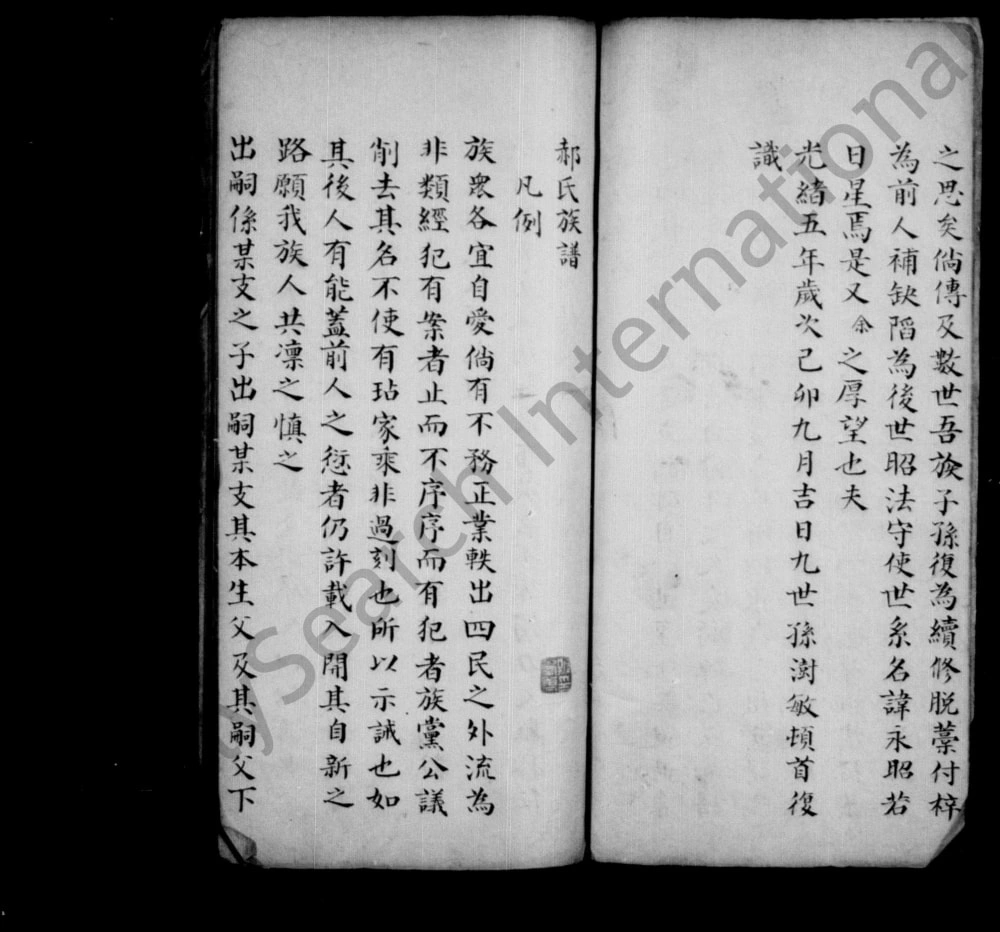 之思矣倘傳及數世吾族子孫復為續修脫藁付梓
為前人補缺陷為後世昭法守使世系名諱永昭若
日星焉是又余之厚望也夫
光緒五年歲次己卯九月吉日九世孫澍敏頓首復
識
郝氏族譜
凡例
族眾各宜自愛倘有不務正業軼出四民之外流為
非類經犯有案者止而不序序而有犯者族黨公議
削去其名不使有玷家乘非過刻也所以示誡也如
其後人有能蓋前人之愆者仍許載入開其自新之
路願我族人共凛之慎之
出嗣係某支之子出嗣某支其本生父及其嗣父下
ySearch International